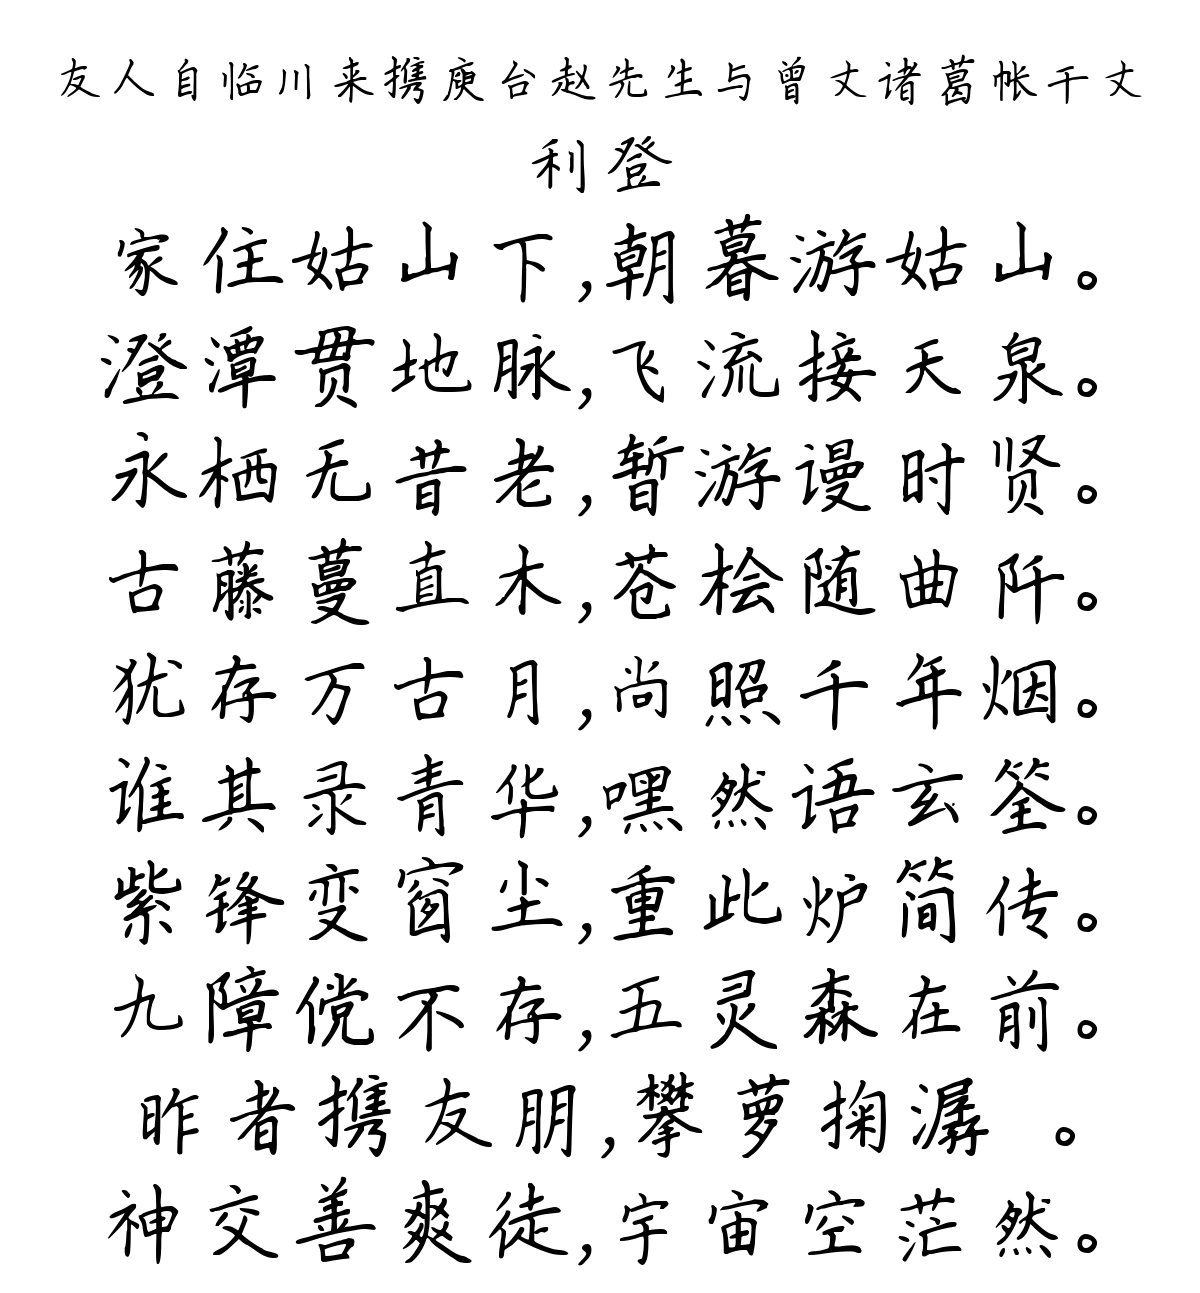 友人自临川来携庾台赵先生与曾丈诸葛帐干丈
利登
家住姑山下,朝暮游姑山。
澄潭贯地脉,飞流接天泉。
永栖无昔老,暂游谩时贤。
古藤蔓直木,苍桧随曲阡。
犹存万古月,尚照千年烟。
谁其录青华,嘿然语玄筌。
紫锋变窗尘,重此炉简传。
九障傥不存,五灵森在前。
昨者携友朋,攀萝掬潺 。
神交善爽徒,宇宙空茫然。